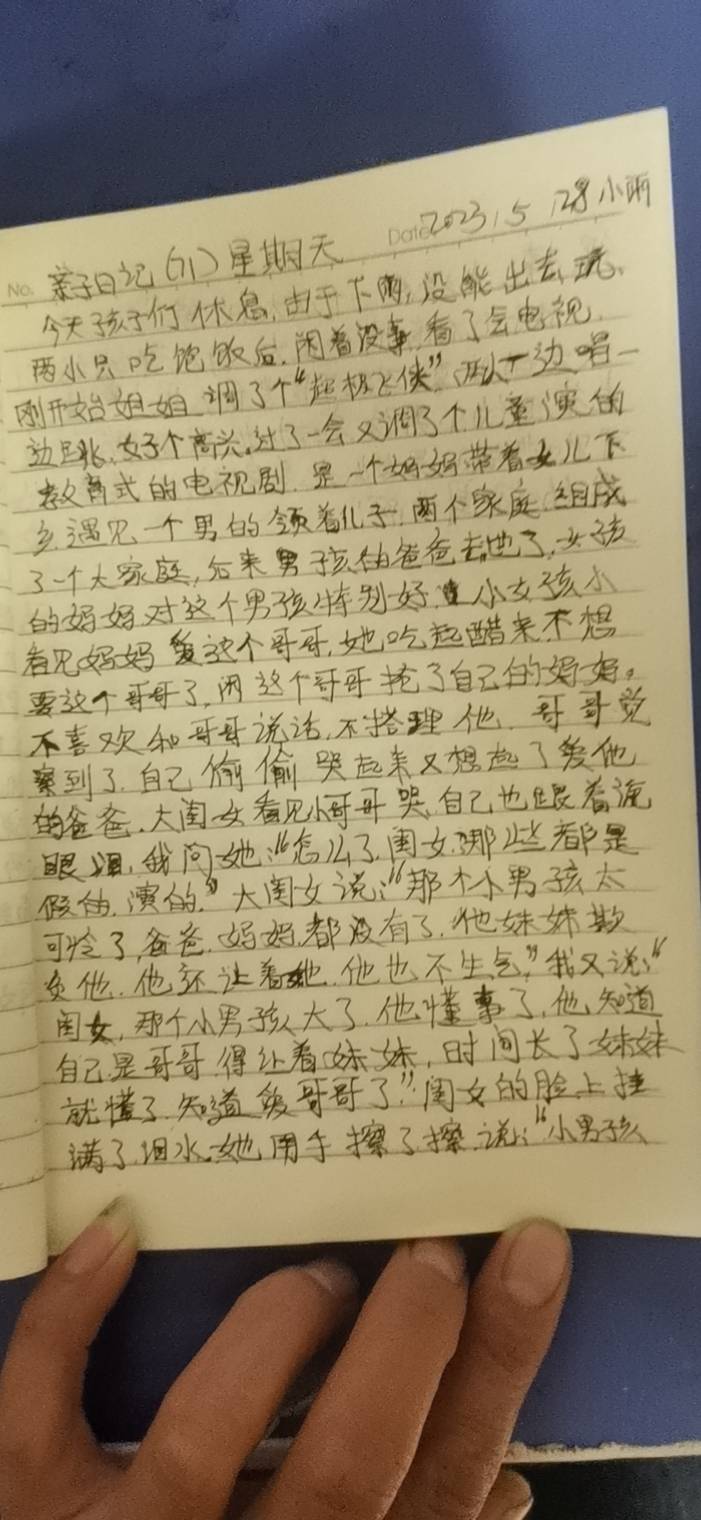 Date 2023.5.28号 小雨
No. 亲子日记(71)星期天
今天孩子们休息,由于下雨,没能出去玩,
两小只吃饱饭后,闲着没事,看了会电视,
刚开始姐姐调了个“超极飞侠”,一边唱一
边跳,好个高兴,过了一会又调了个儿童演的
教育式的电视剧,是一个妈妈带着女儿下
乡,遇见一个男的领着儿子,两个家庭,组成
了一个大家庭,后来男孩的爸爸去世了,女孩
的妈妈对这个男孩特别好,小女孩小
看见妈妈爱这个哥哥,她吃起醋来,不想
要这个哥哥了,因这个哥哥抢了自己的妈妈。
不喜欢和哥哥说话,不搭理他,哥哥觉
察到了,自己偷偷哭起来又想起了爱他
的爸爸,大闺女看见小哥哥哭,自己也跟着流
眼泪,我问她:“怎么了,闺女,那些都是
假的,演的。”大闺女说:“那个小男孩太
可怜了,爸爸,妈妈,都没有了,他妹妹欺
负他,他还让着她,他也不生气,”我又说:“
闺女,那个小男孩大了,他懂事了,他知道
自己是哥哥,得让着妹妹,时间长了妹妹
就懂了,知道爱哥哥了”闺女的脸上挂
满了泪水,她用手擦了擦,说:“小男孩